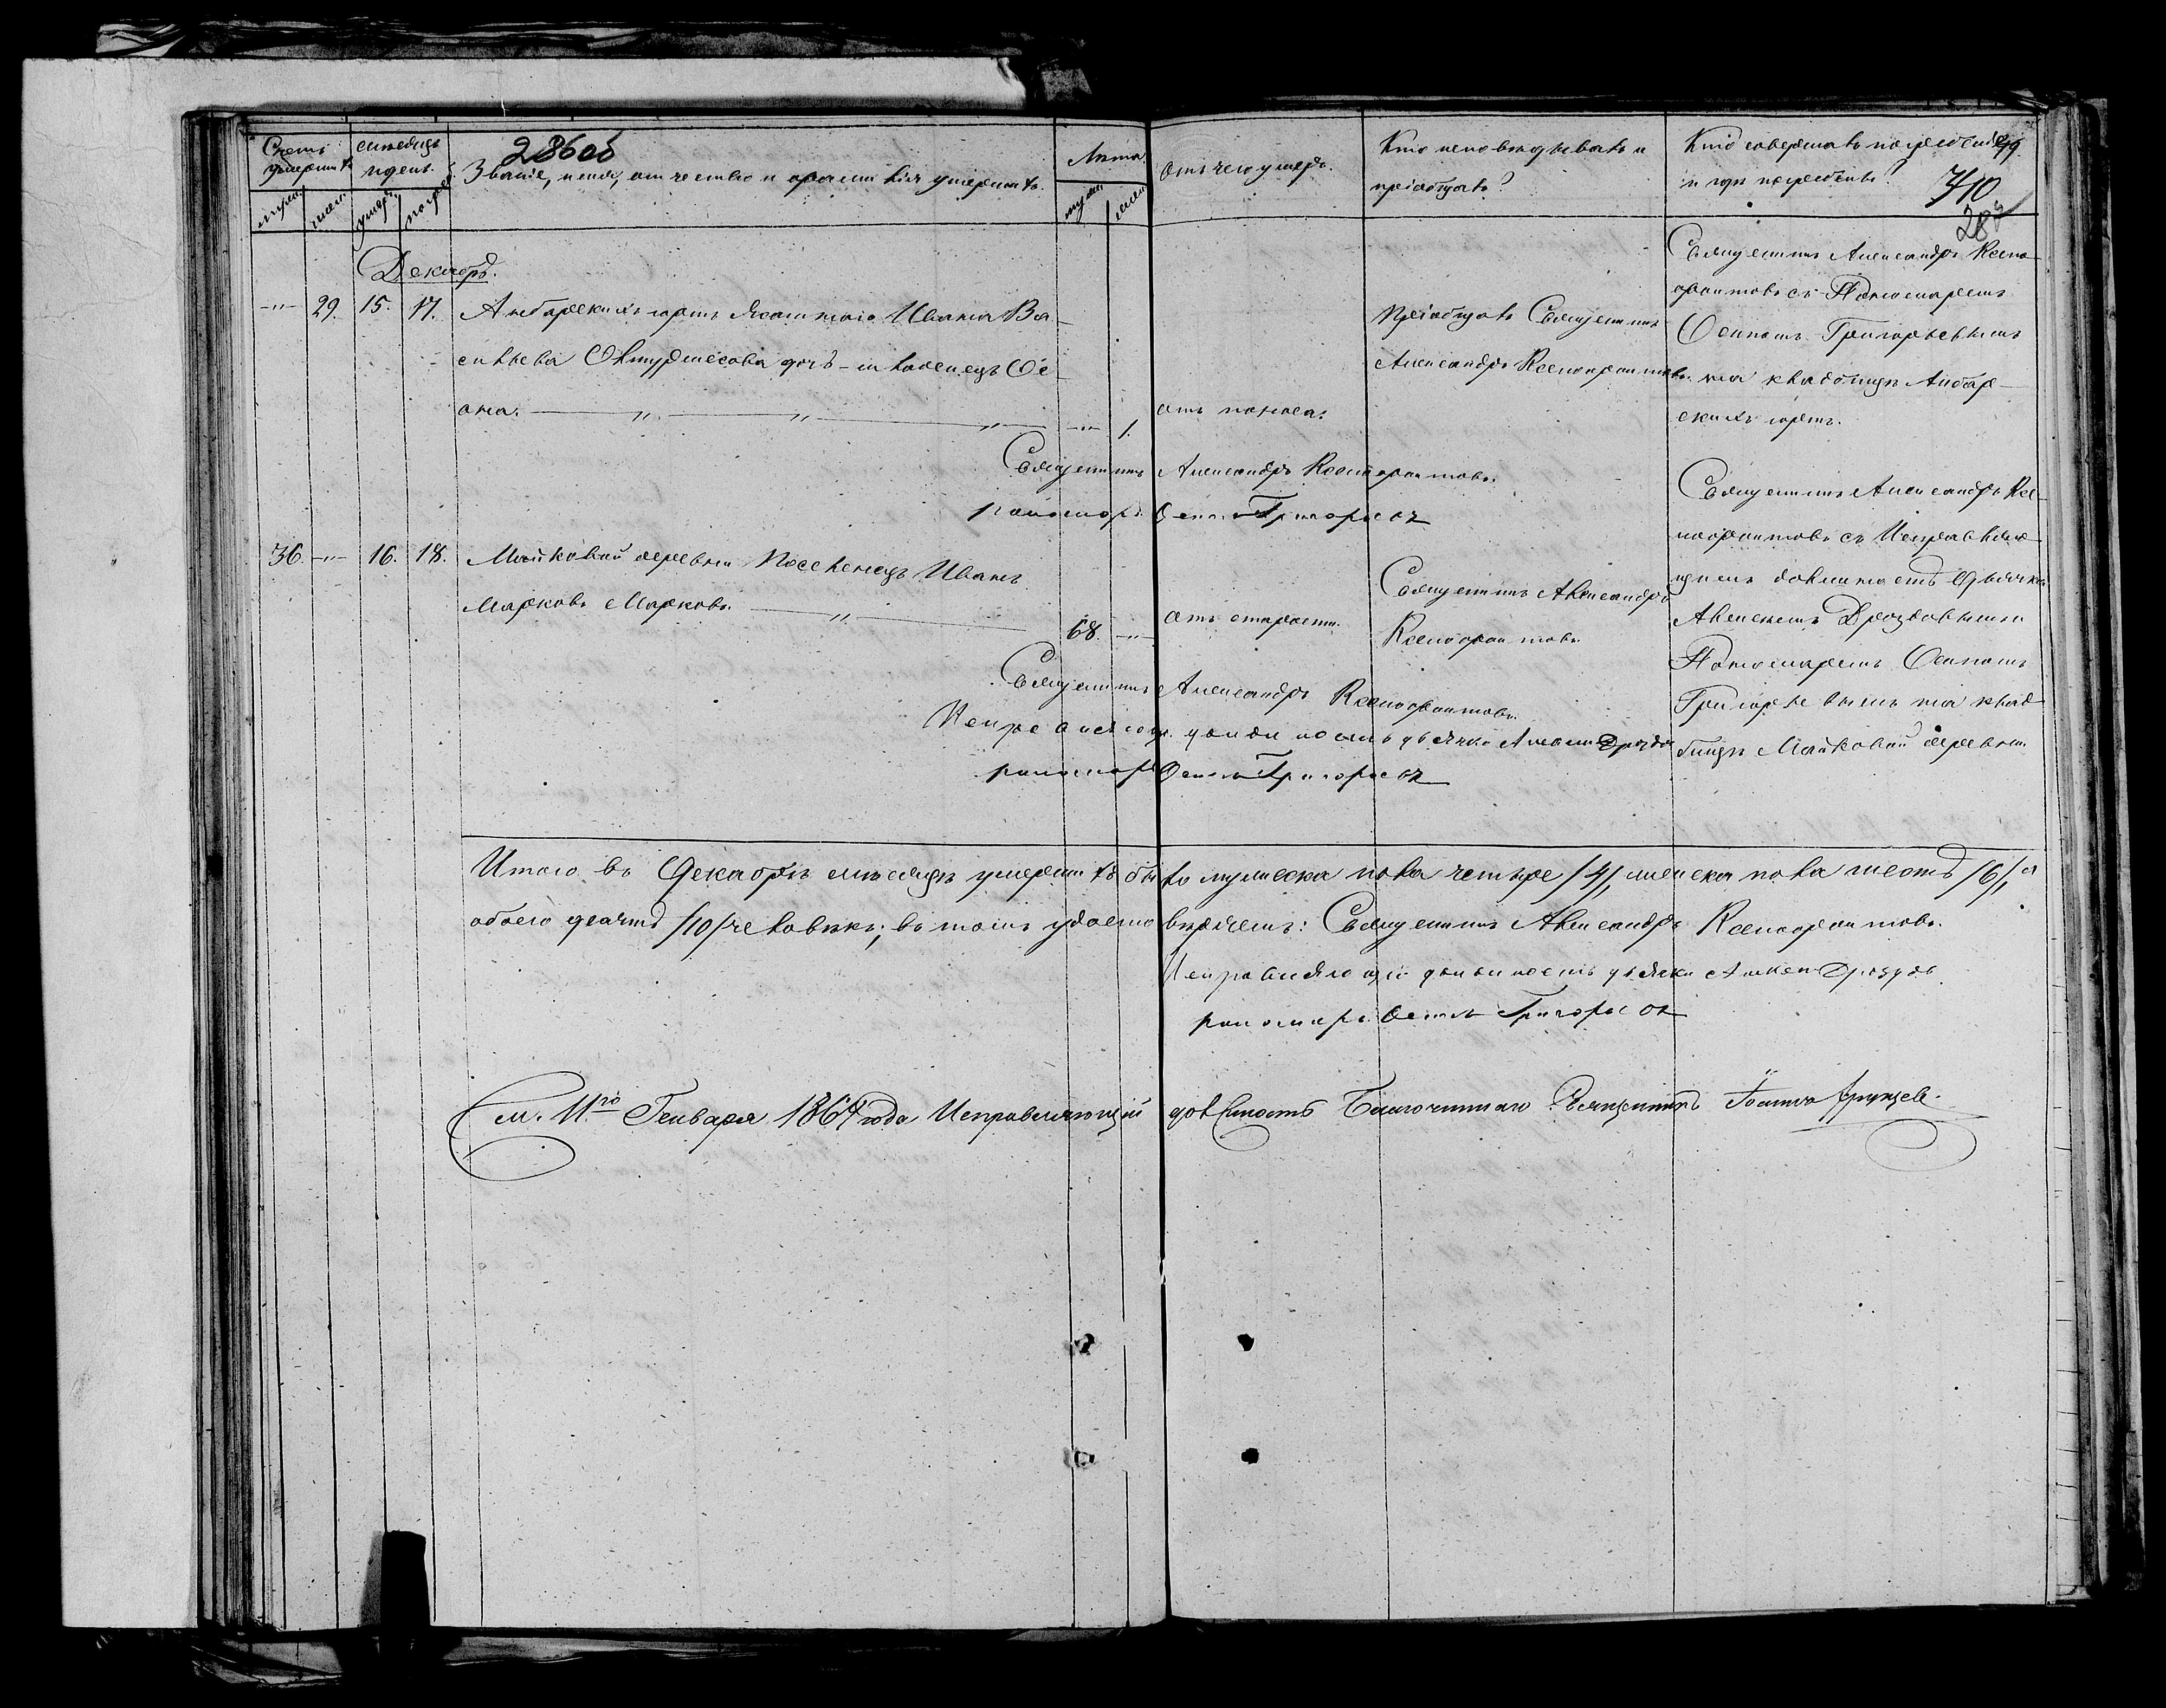 286об
Счетъ умершихъ
мѣсяцъ и день.
Званіе, имя, отчество и фамилія умершихъ.
Лѣта.
отъ чего умеръ.
Кто исповѣдывалъ и
пріобщалъ?
Кто совершалъ погребеніе
и гдѣ погребенъ?
710
287
муж. жен. умер. погреб.
муж. жен.
Декабрь.
-"- 29. 15. 17. Анбарскихъ юртъ Ясашнаго Ивана Ва-
сильева дочь-младенецъ Ѳе-
она. -"- 1. отъ поноса.
Пріобщалъ Священникъ
Александръ Ксенофонтовъ.
Священникъ Александръ Ксено-
фонтовъ съ Пономаремъ
Осипомъ Григорьевымъ
на кладбищѣ Анбар-
скихъ юртъ.
Священникъ Александръ Ксенофонтовъ.
пономарь Осипъ Григорьевъ
36. -"- 16. 18. Майковой деревни Поселенецъ Иванъ
Марковъ Марковъ. 68. -"- отъ старости.
Священникъ Александръ
Ксенофонтовъ.
Священникъ Александръ Ксе-
нофонтовъ съ Исправляю-
щимъ должность Дьячка
Алексѣемъ Дроздовымъ и
Пономаремъ Осипомъ
Григорьевымъ на клад-
бищѣ Майковой деревни.
Священникъ Александръ Ксенофонтовъ.
Исправляющ. должность дьячка Алексѣй Дроздовъ
пономарь Осипъ Григорьевъ
Итого въ Декабрѣ мѣсяцѣ умершихъ было мужеска пола четыре /4/, женска пола шесть /6/, а
обоего десять /10/ человѣкъ; въ томъ удостовѣряемъ: Священникъ Александръ Ксенофонтовъ.
Исправляющій должность дьячка Алексѣй Дроздовъ
пономарь Осипъ Григорьевъ
См. 11го Генваря 1864 года Исправляющій должность Благочиннаго Священникъ Іоаннъ